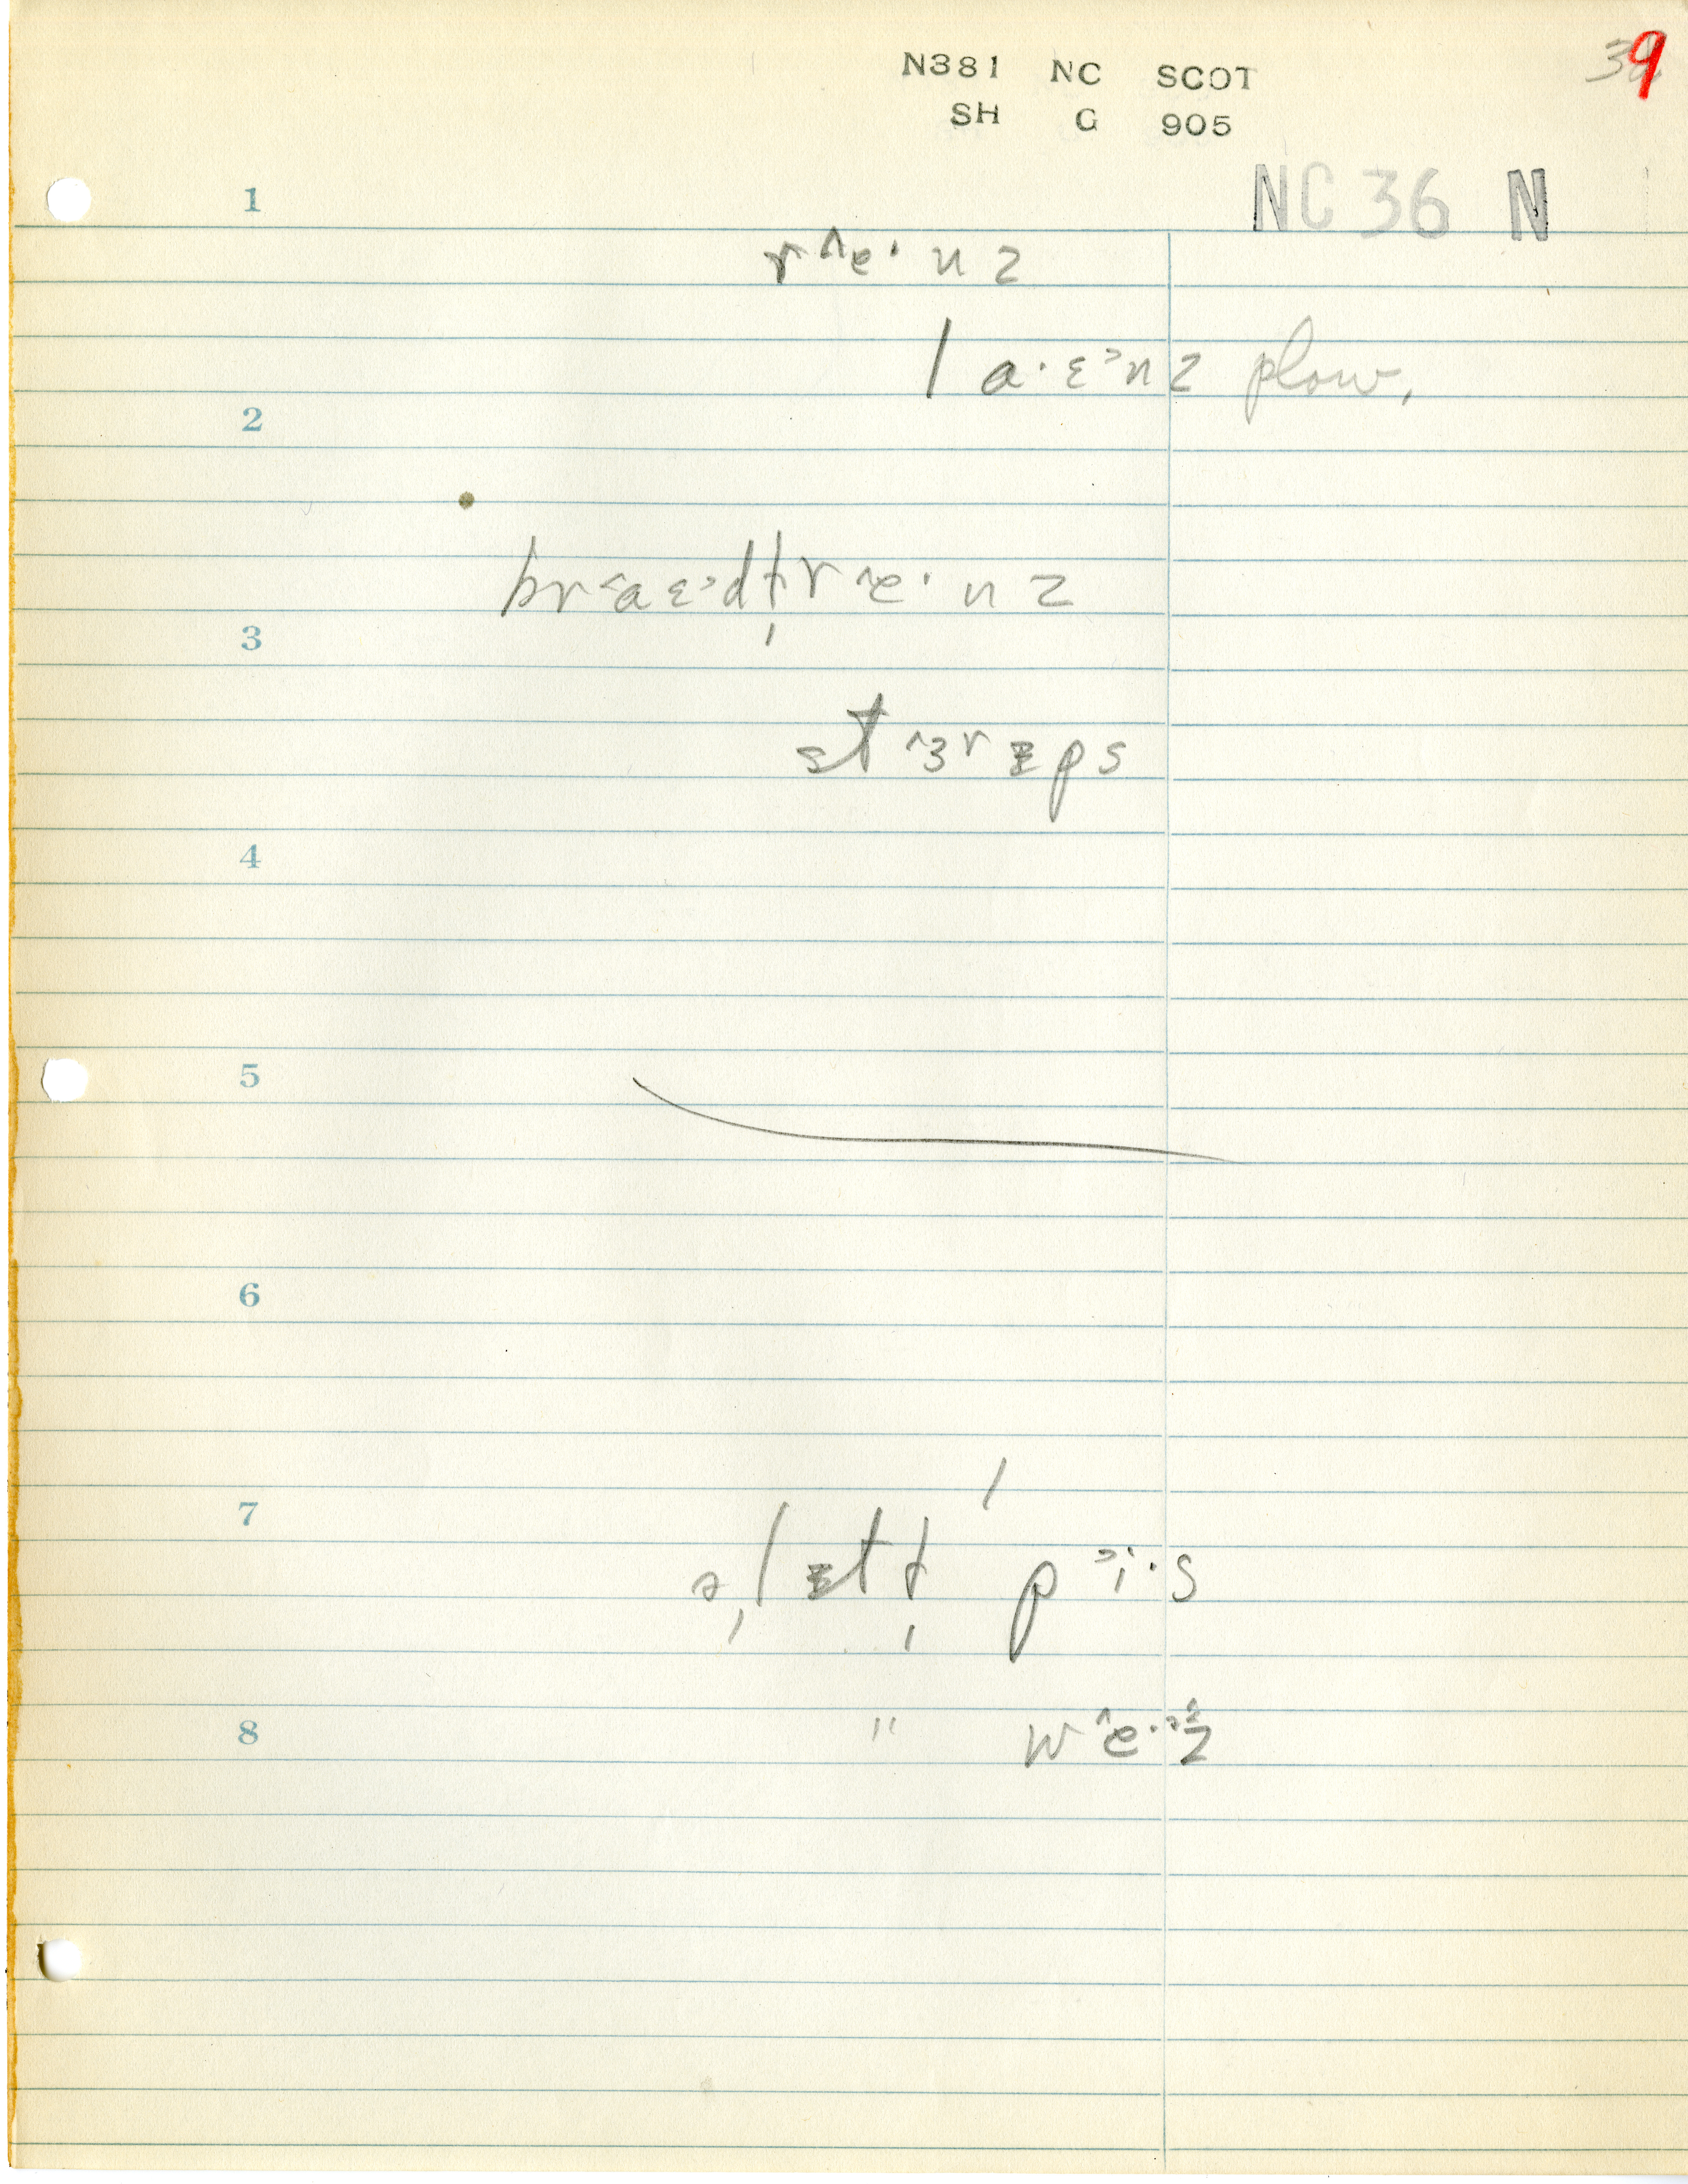 N381 NC SCOT
SH G 905
39
NC 36 N
1
r^e· n z
l a·ɛ˃n z plow,
2
br˂aɛ˃dl̩r^e·nz
3
st^ɜrᵻps
4
5
6
7
ə̩lᵻtl̩ p˃i·s
8
" w^e·˃z